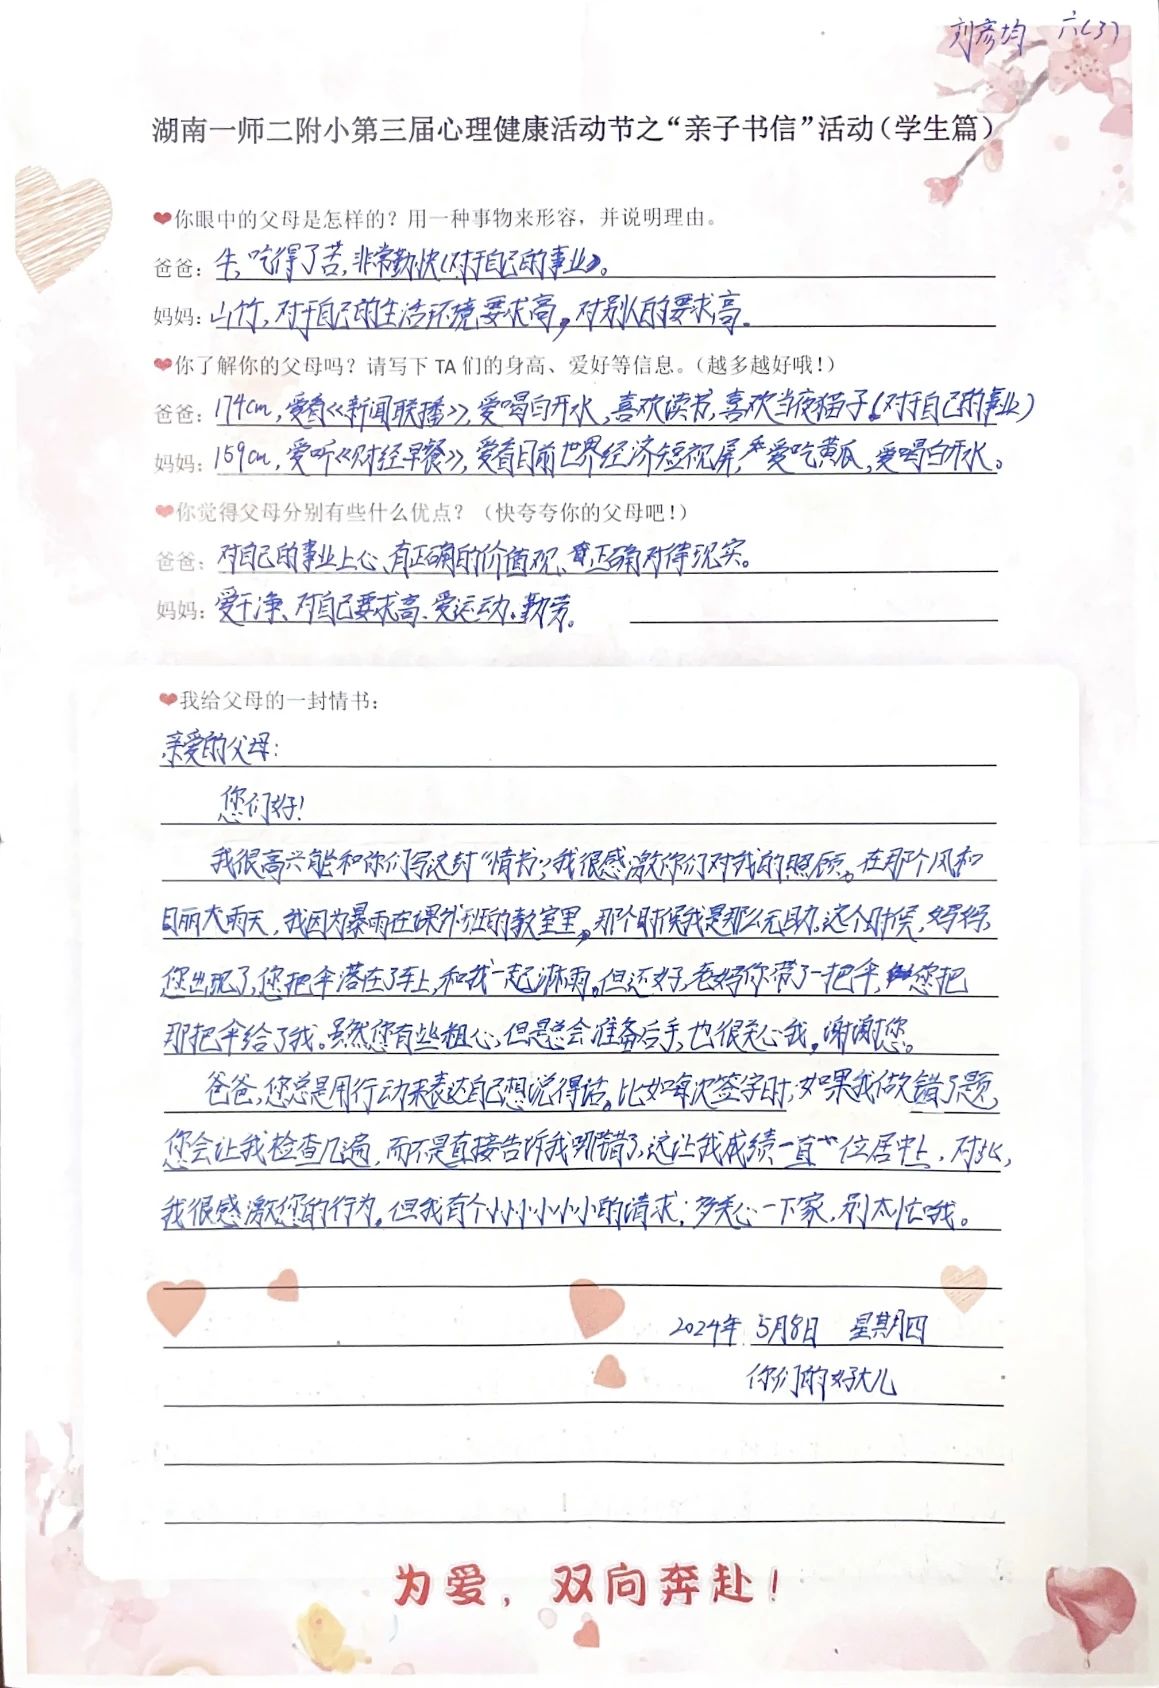 刘彦均 六(3)
湖南一师二附小第三届心理健康活动节之“亲子书信”活动（学生篇）
❤你眼中的父母是怎样的？用一种事物来形容，并说明理由。
爸爸：牛，吃得了苦，非常勤快（对于自己的事业）。
妈妈：山竹，对于自己的生活环境要求高，对别人的要求高。
❤你了解你的父母吗？请写下 TA 们的身高、爱好等信息。（越多越好哦！）
爸爸：174cm，爱看《新闻联播》，爱喝白开水，喜欢读书，喜欢当夜猫子（对于自己的事业）
妈妈：159cm，爱听《财经早餐》，爱看目前世界经济短视屏，爱吃黄瓜，爱喝白开水。
❤你觉得父母分别有些什么优点？（快夸夸你的父母吧！）
爸爸：对自己的事业上心、有正确的价值观、正确对待现实。
妈妈：爱干净、对自己要求高、爱运动、勤劳。
❤我给父母的一封情书：
亲爱的父母：
您们好！
我很高兴能和你们写这封“情书”，我很感激你们对我的照顾。在那个风和
日丽大雨天，我因为暴雨在课外班的教室里，那个时候我是那么无助。这个时候，妈妈，
您出现了，您把伞落在了车上，和我一起淋雨。但还好，老妈你带了一把伞，您把
那把伞给了我。虽然您有些粗心，但是总会准备后手，也很关心我，谢谢您。
爸爸，您总是用行动来表达自己想说得话。比如每次签字时，如果我做错了题，
您会让我检查几遍，而不是直接告诉我哪错了，这让我成绩一直位居中上，对此，
我很感激您的行为。但我有个小小小小小的请求：多关心一下家，别太忙哦。
2024年 5月8日 星期四
你们的好大儿
为爱，双向奔赴！